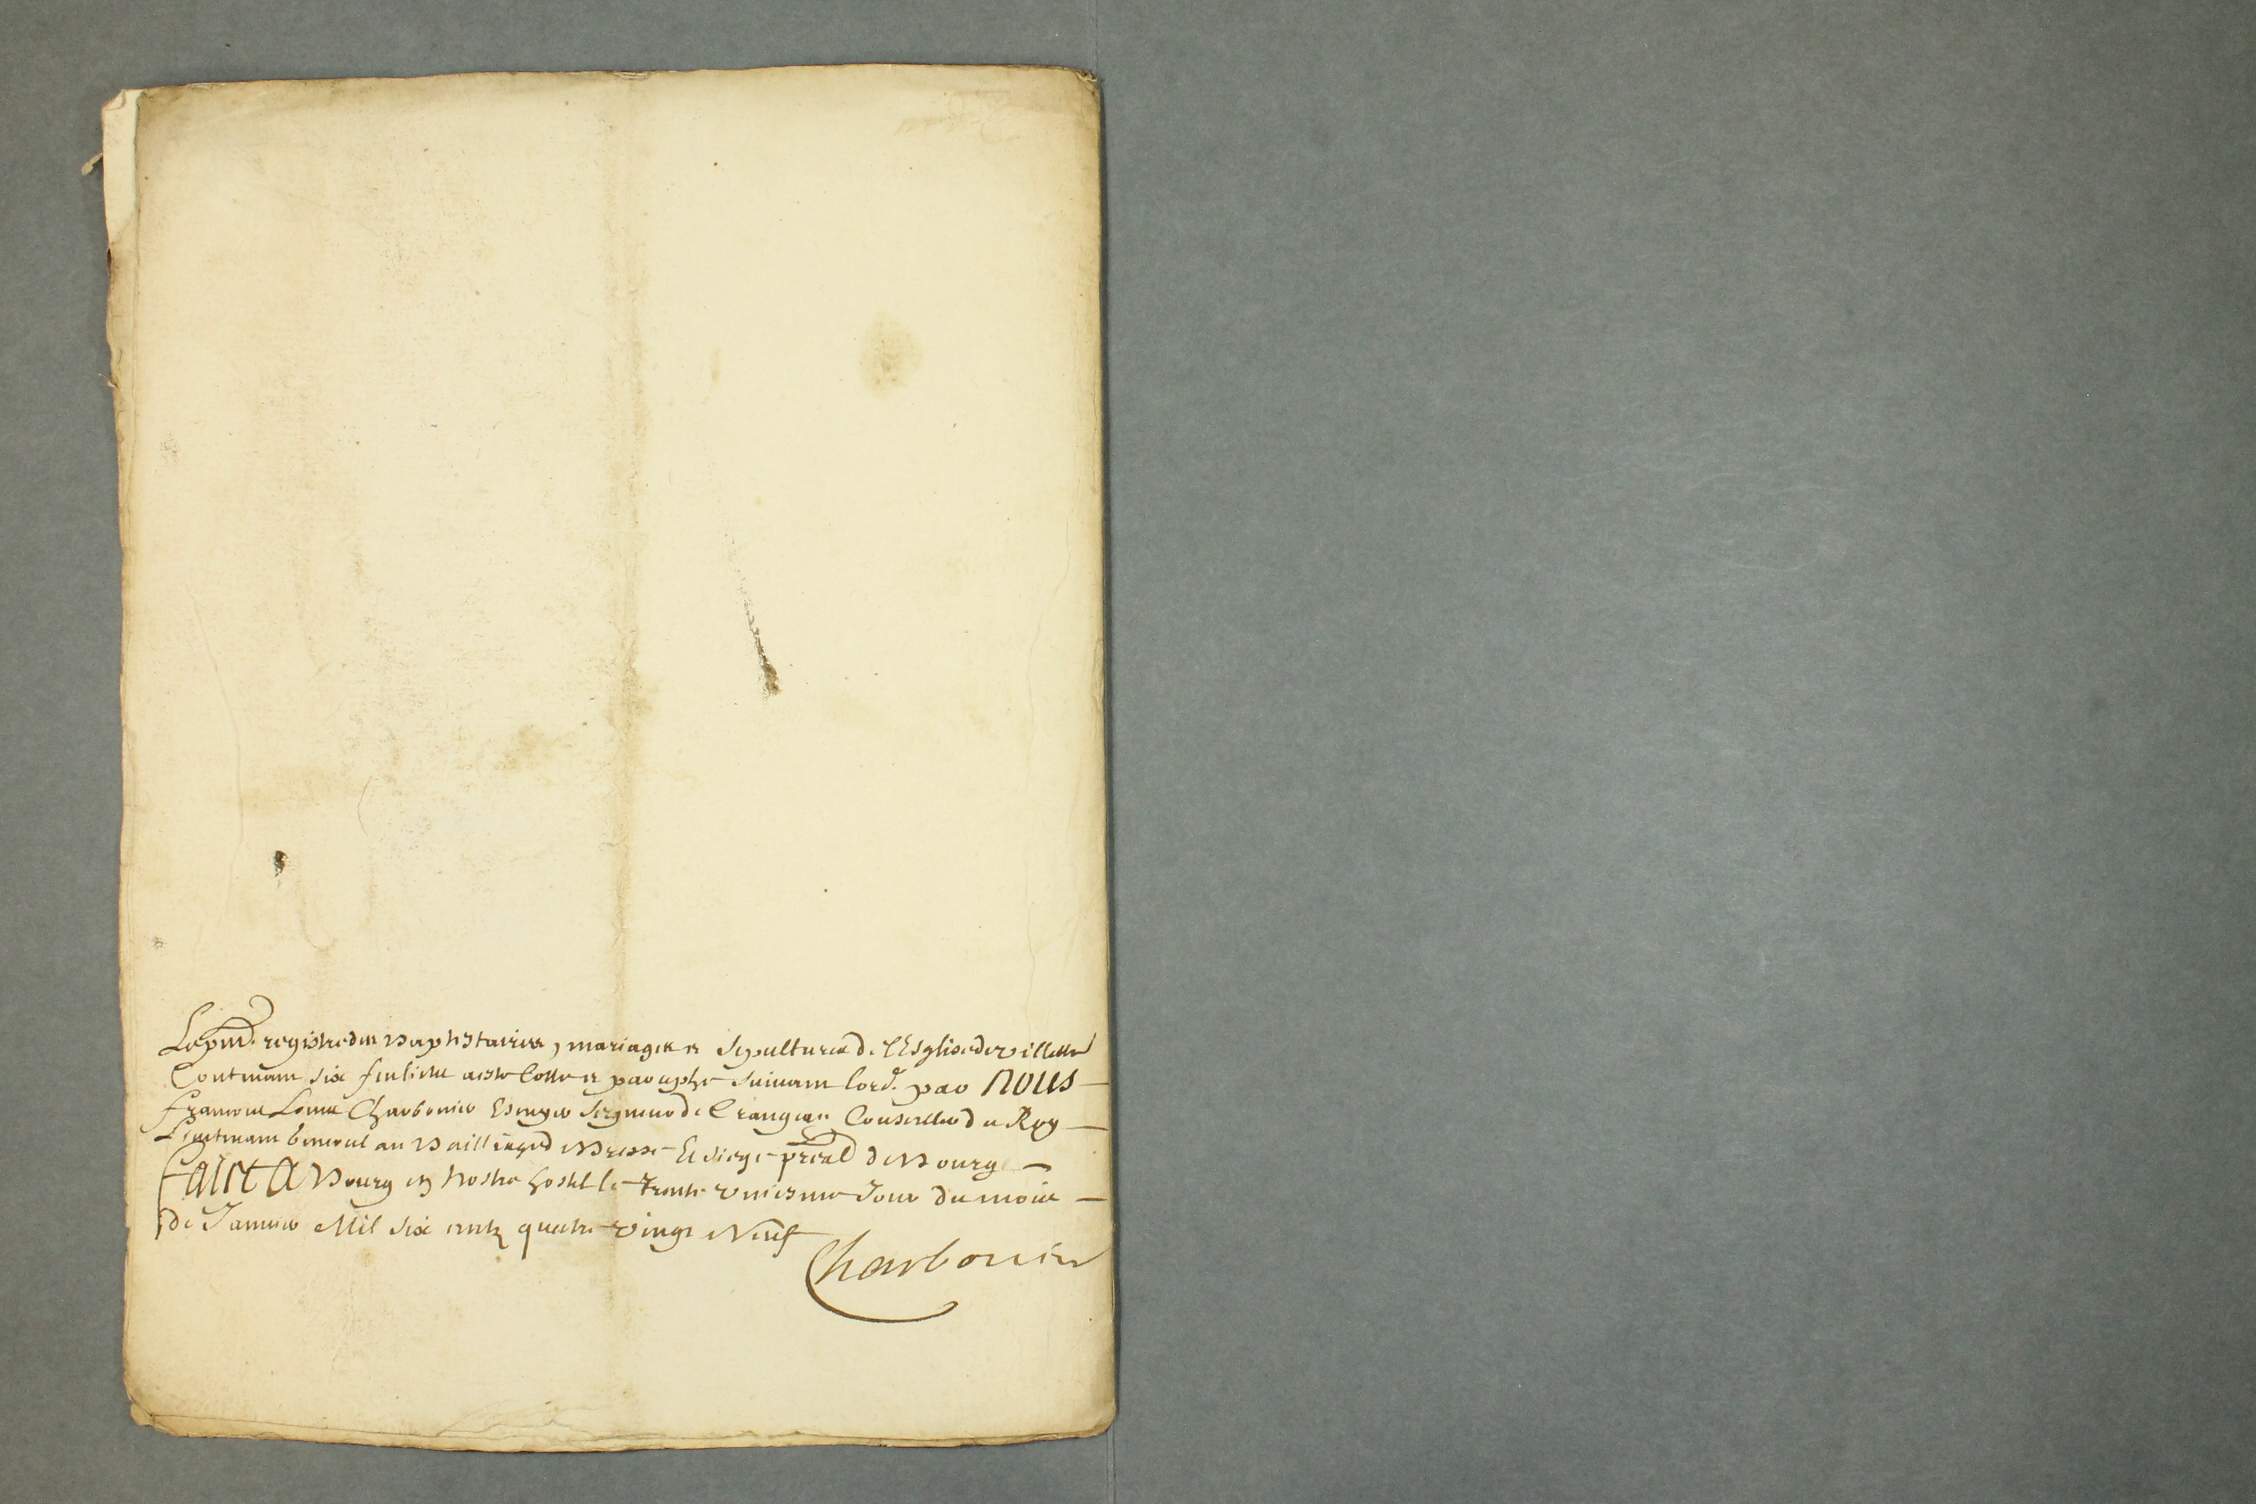 Le pnt. registre des Baptistaires, mariages et sepultures de l'Esglise de villette
Contenant six feulietz a esté cotté et paraphé suivant l'ord. par NOUS
françois Louis Charbonier Escuyer seigneur de Crangeac Conseiller du Roy
Lieutenant General au Bailliage de Bresse Et siege preal de Bourg
FAICT A Bourg en nostre hostel le trente uniesme Jour du mois
de Janvier Mil six centz quatre vingt Neuf
Charbonier